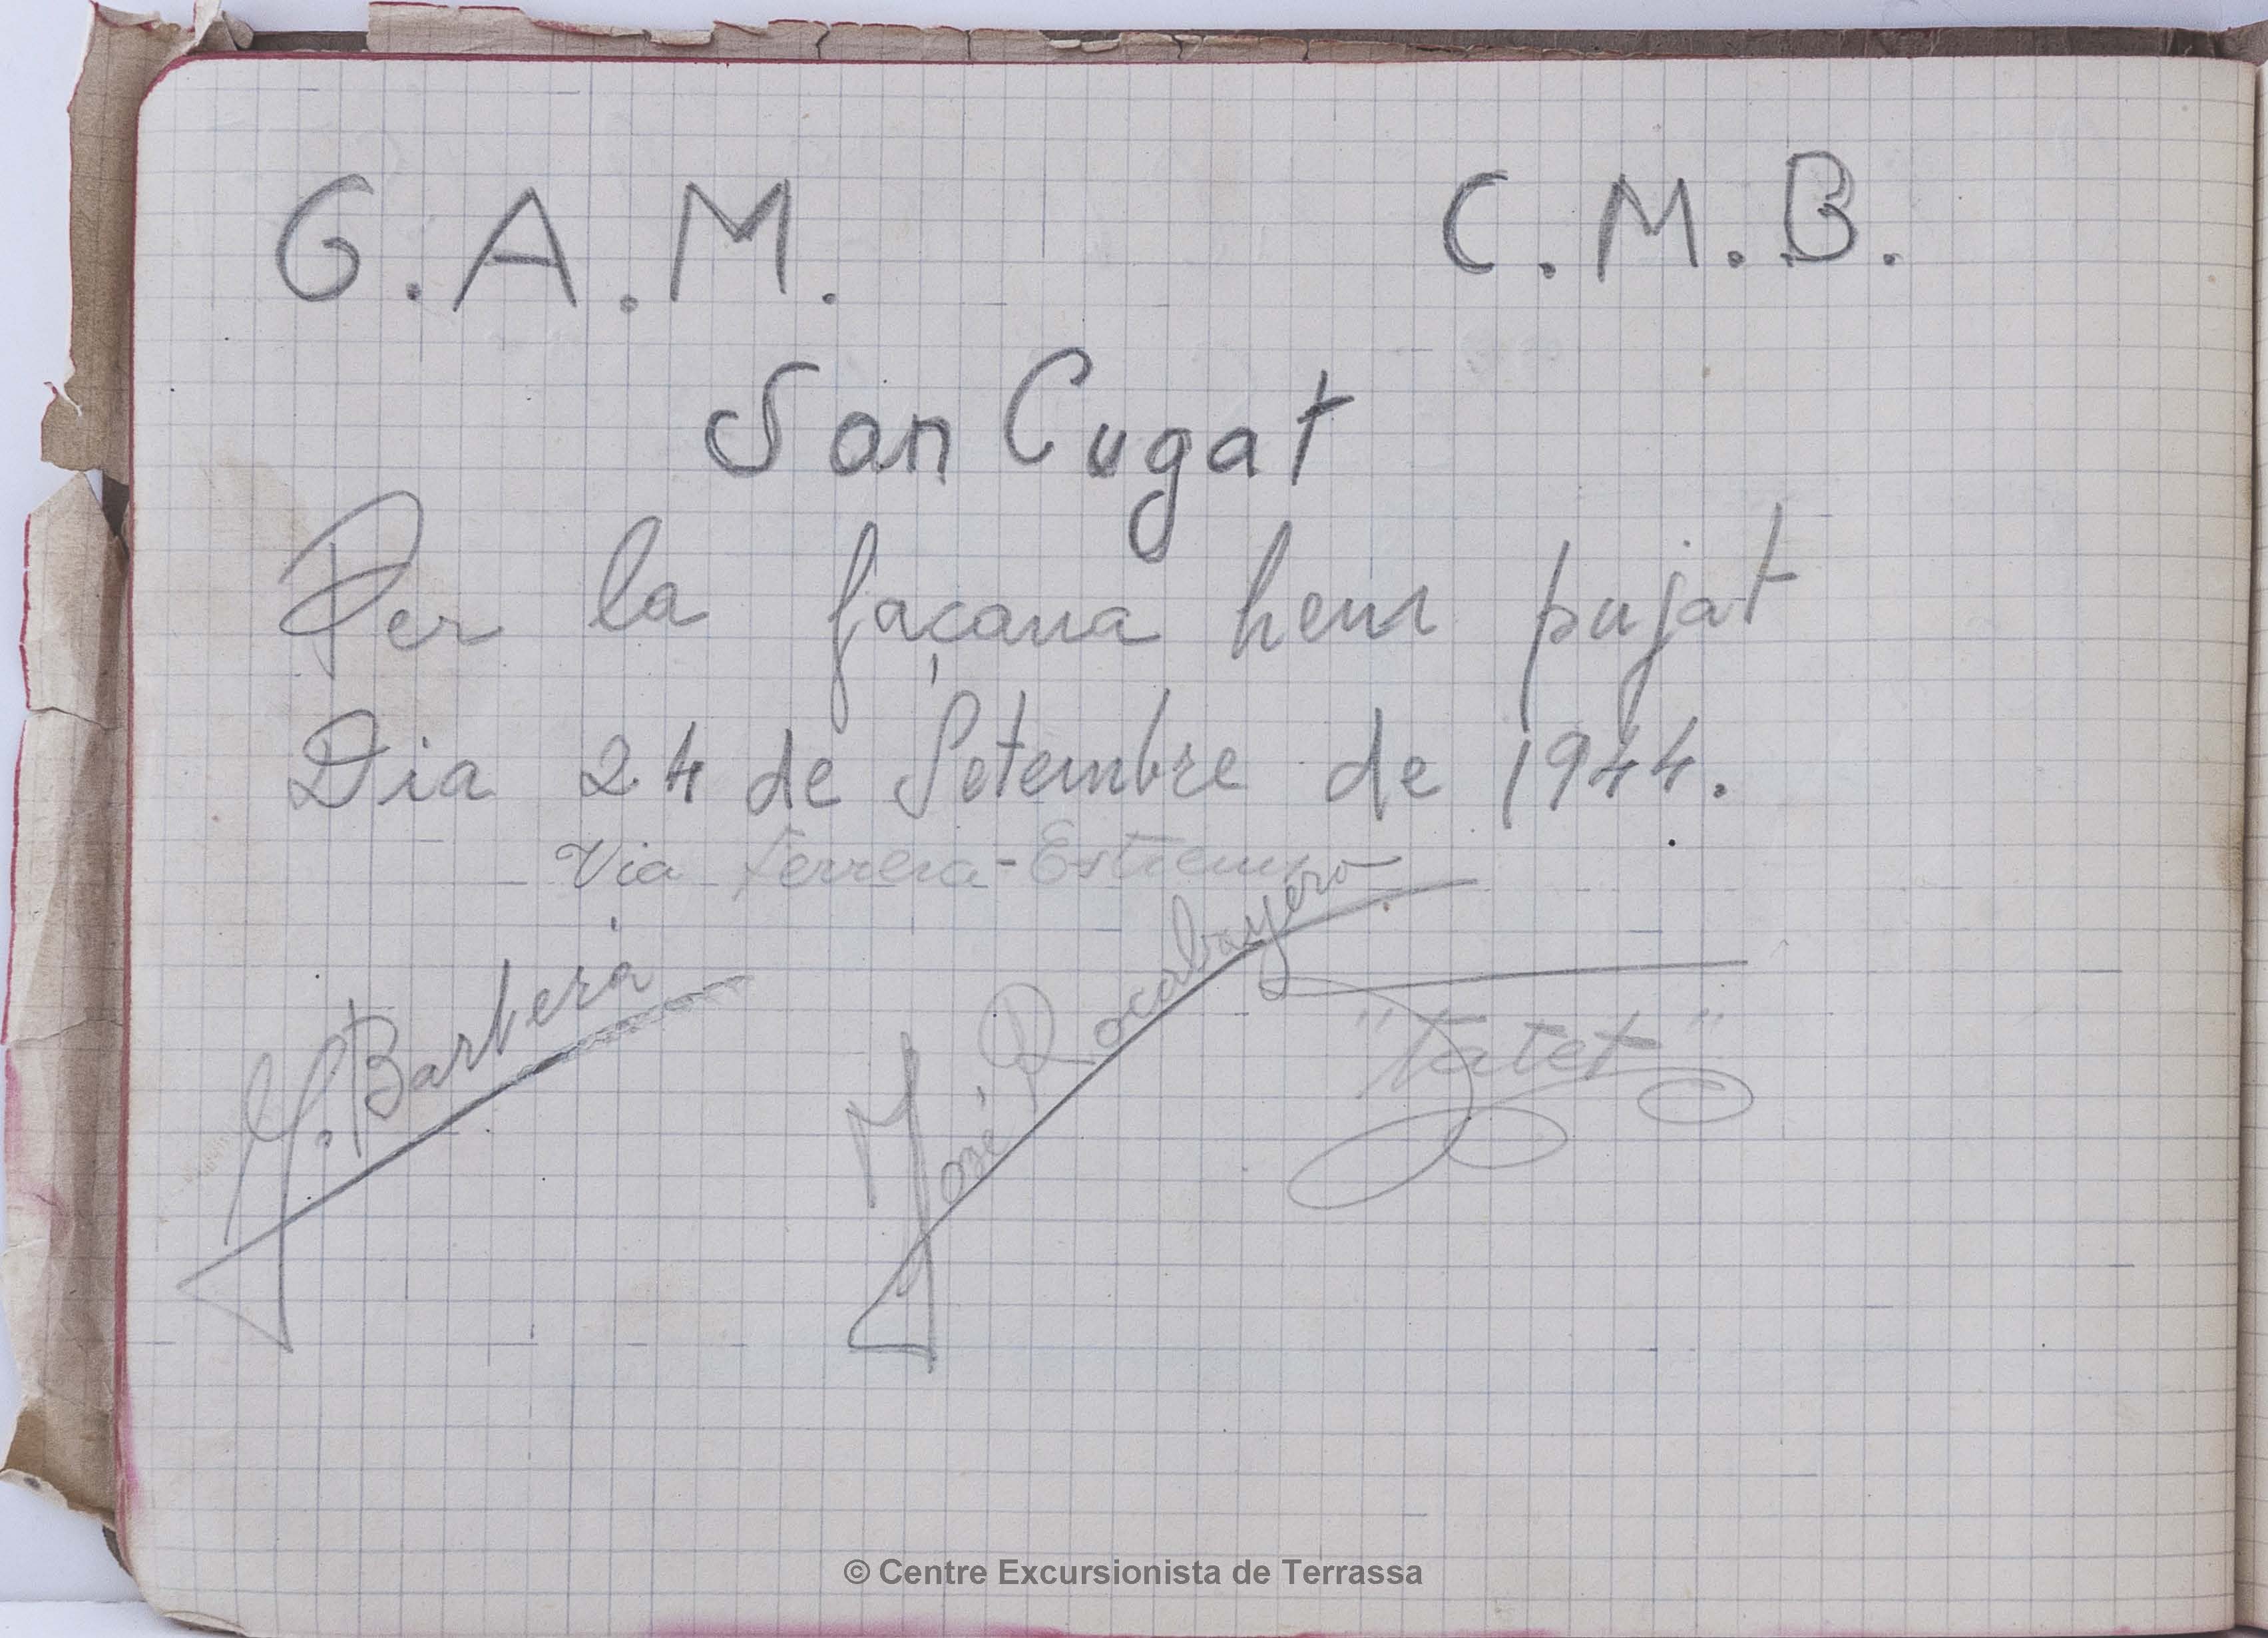 G.A.M. C.M.B.
San Cugat
Per la façana hem pujat
Dia 24 de Setembre de 1944.
Via Ferrera-Estrems
J. Barberà
José Rocabayera
"Tatet"
© Centre Excursionista de Terrassa